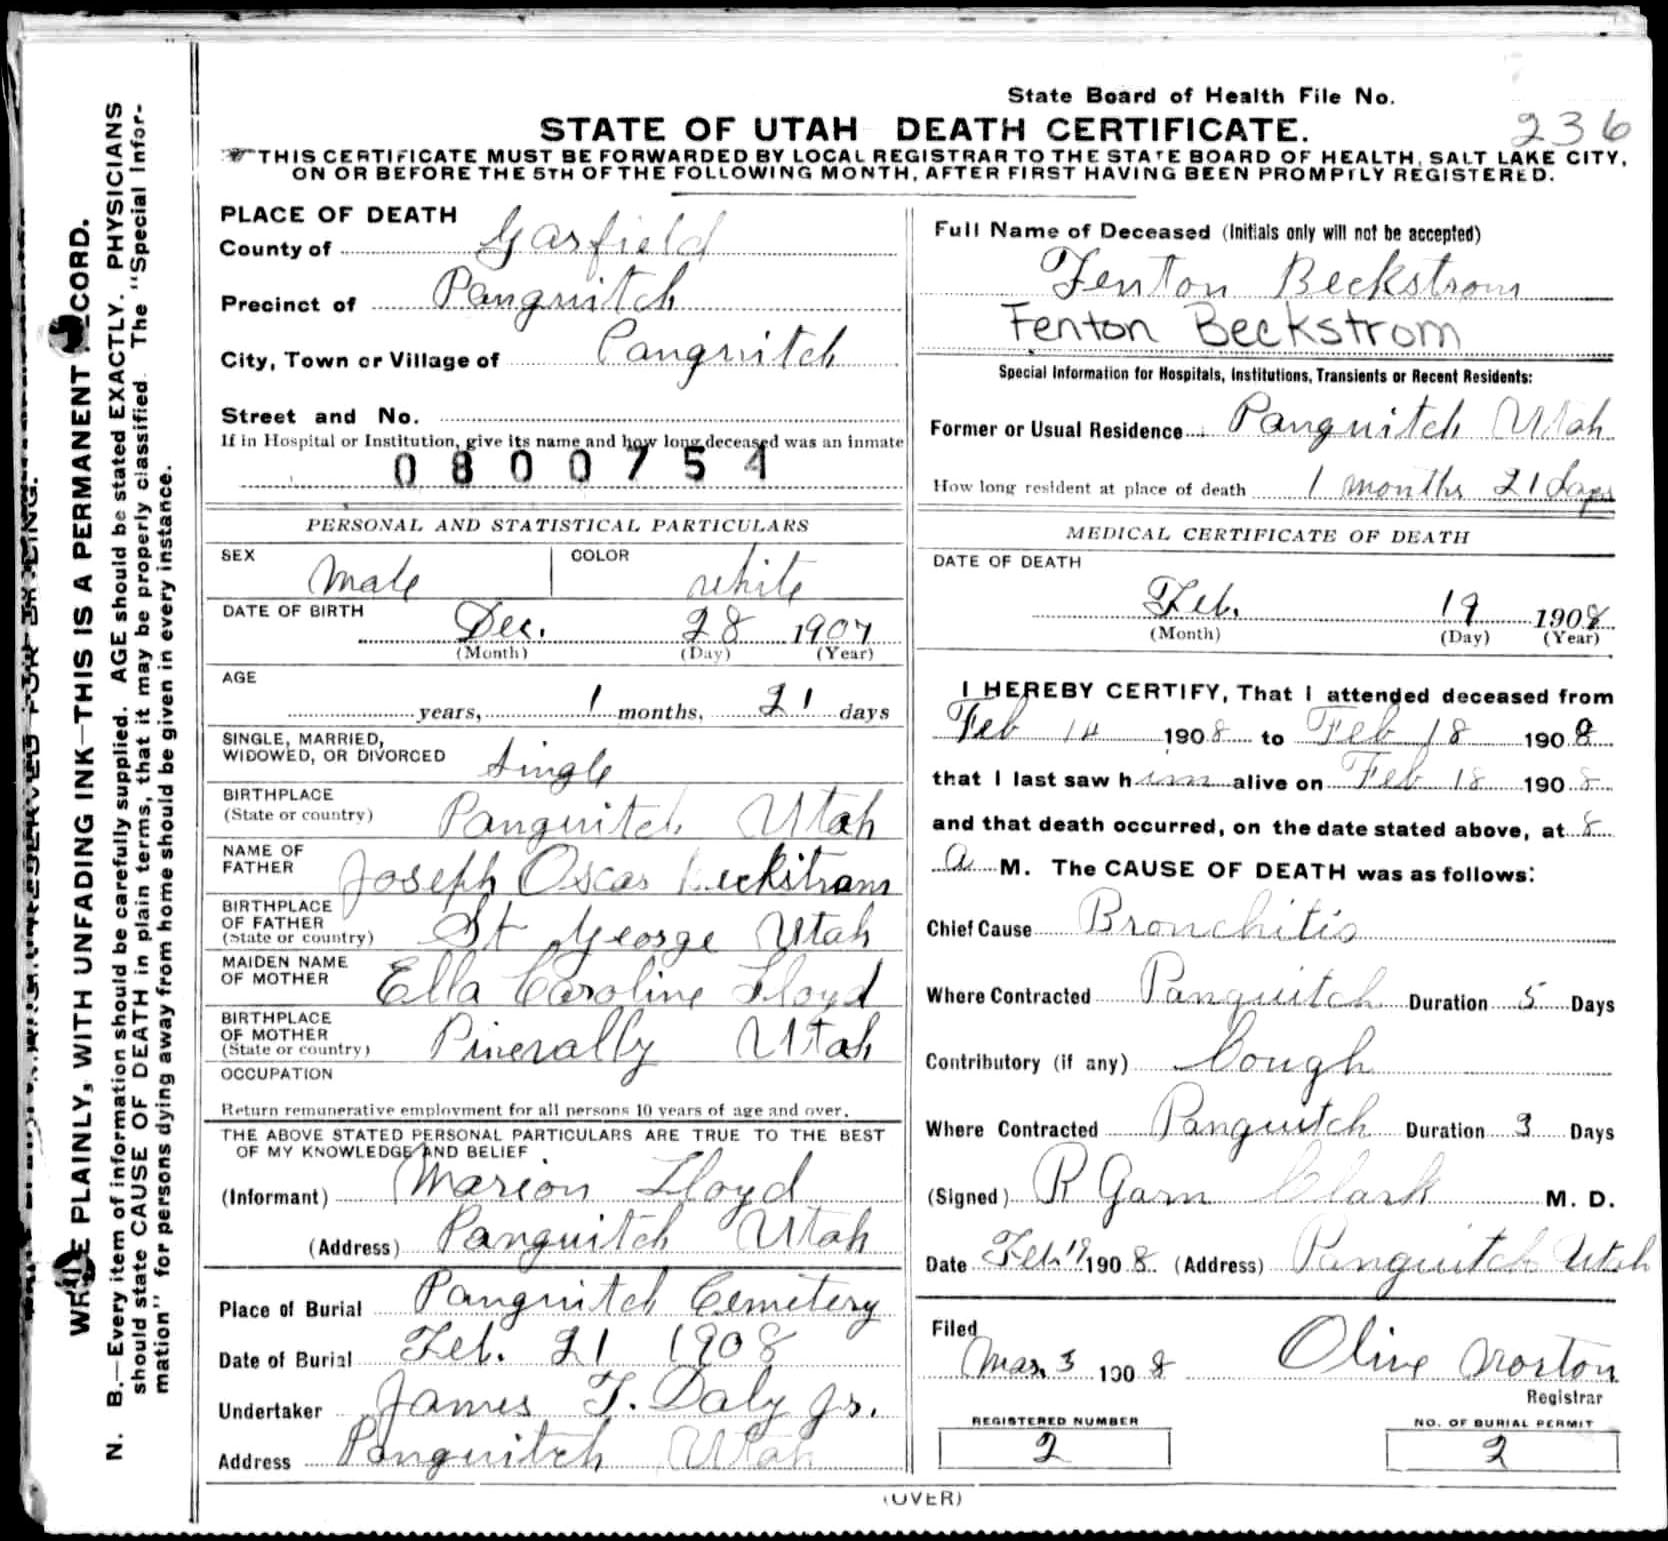 State Board of Health File No.
236
STATE OF UTAH DEATH CERTIFICATE.
THIS CERTIFICATE MUST BE FORWARDED BY LOCAL REGISTRAR TO THE STATE BOARD OF HEALTH, SALT LAKE CITY,
ON OR BEFORE THE 5TH OF THE FOLLOWING MONTH, AFTER FIRST HAVING BEEN PROMPTLY REGISTERED.
WRITE PLAINLY, WITH UNFADING INK—THIS IS A PERMANENT RECORD.
N. B.—Every item of information should be carefully supplied. AGE should be stated EXACTLY. PHYSICIANS
should state CAUSE OF DEATH in plain terms, that it may be properly classified. The "Special Infor-
mation" for persons dying away from home should be given in every instance.
PLACE OF DEATH
County of Garfield
Precinct of Panguitch
City, Town or Village of Panguitch
Street and No.
If in Hospital or Institution, give its name and how long deceased was an inmate
0800754
PERSONAL AND STATISTICAL PARTICULARS
SEX Male COLOR white
DATE OF BIRTH Dec. 28 1907
(Month) (Day) (Year)
AGE
years, 1 months, 21 days
SINGLE, MARRIED,
WIDOWED, OR DIVORCED Single
BIRTHPLACE
(State or country) Panguitch Utah
NAME OF
FATHER Joseph Oscar Beckstrom
BIRTHPLACE
OF FATHER
(State or country) St George Utah
MAIDEN NAME
OF MOTHER Ella Caroline Lloyd
BIRTHPLACE
OF MOTHER
(State or country) Pinevally Utah
OCCUPATION
Return remunerative employment for all persons 10 years of age and over.
THE ABOVE STATED PERSONAL PARTICULARS ARE TRUE TO THE BEST
OF MY KNOWLEDGE AND BELIEF
(Informant) Marion Lloyd
(Address) Panguitch Utah
Place of Burial Panguitch Cemetery
Date of Burial Feb. 21 1908
Undertaker James T. Daly Jr.
Address Panguitch Utah
Full Name of Deceased (Initials only will not be accepted)
Fenton Beckstrom
Fenton Beckstrom
Special Information for Hospitals, Institutions, Transients or Recent Residents:
Former or Usual Residence Panguitch Utah
How long resident at place of death 1 months 21 days
MEDICAL CERTIFICATE OF DEATH
DATE OF DEATH
Feb. 19 1908
(Month) (Day) (Year)
I HEREBY CERTIFY, That I attended deceased from
Feb 14 1908 to Feb 18 1908
that I last saw him alive on Feb 18 1908
and that death occurred, on the date stated above, at 8
a M. The CAUSE OF DEATH was as follows:
Chief Cause Bronchitis
Where Contracted Panguitch Duration 5 Days
Contributory (if any) Cough
Where Contracted Panguitch Duration 3 Days
(Signed) R Garn Clark M. D.
Date Feb 19 1908 (Address) Panguitch Utah
Filed
Mar. 3 1908 Olive Norton
Registrar
REGISTERED NUMBER
2
NO. OF BURIAL PERMIT
2
(OVER)